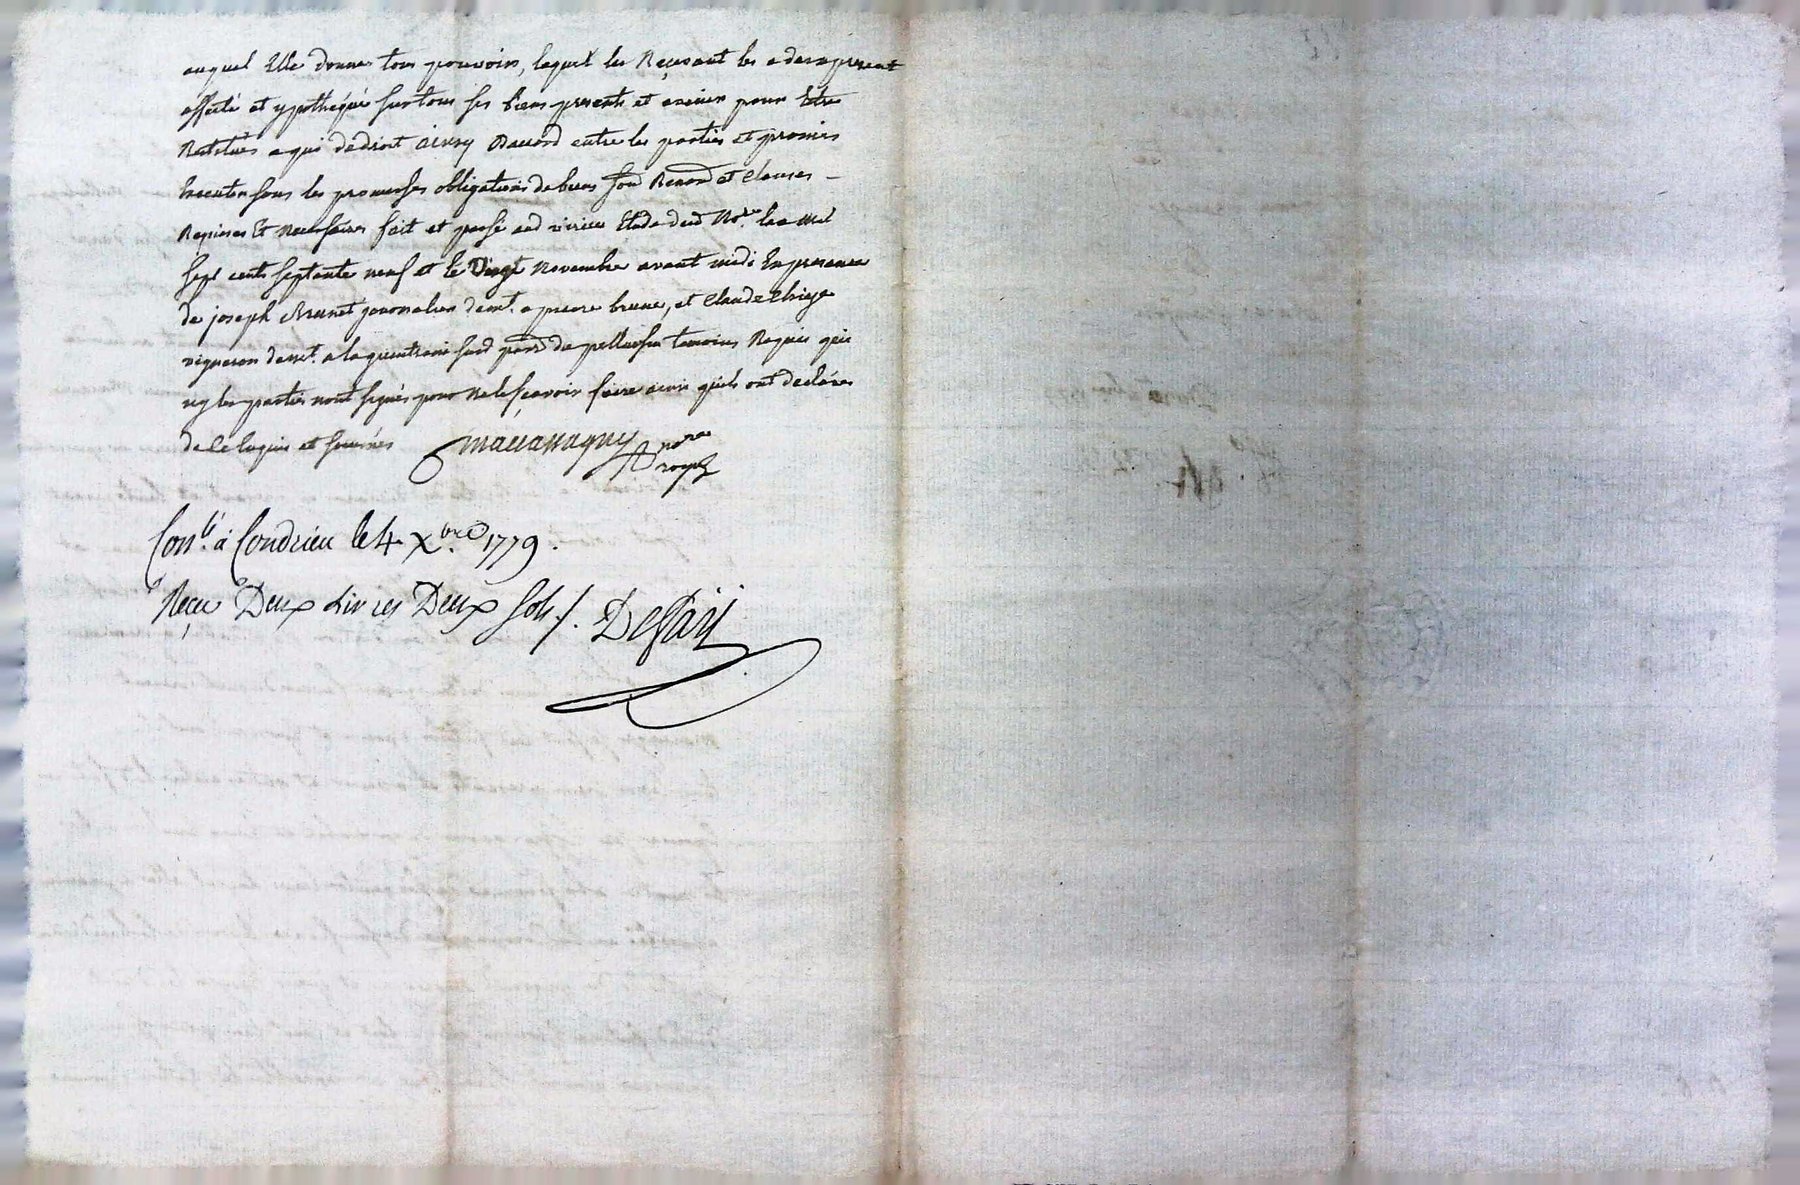 auquel Elle donne tous pouvoirs, lequel les Reçevant les a des a present
affecté et ypothequé sur tous ses biens presents et avenir pour Etre
Restitués a qui de droit ainsy Daccord entre les parties et promis
Executer sous les promesses obligations de biens Renond et clauses -
Requises Et Necessaires fait et passé aud virieu Etude dud No.re lan mil
sept cents septante neuf et le Vingt Novembre avant midi En presence
de joseph Brunet journalier dem.t a pierre brune, et Claude
vigneron dem.t a la sud par.d de pellussin temoins Requis qui
ny les parties nont signés pour ne le sçavoir faire ainsi quils ont declarés
de ce Enquis et sommés macassagny no.re
royal
Con.lé à Condrieu le 4 Xbre 1779.
Reçu Deux Livres Deux sols /. Dessaix